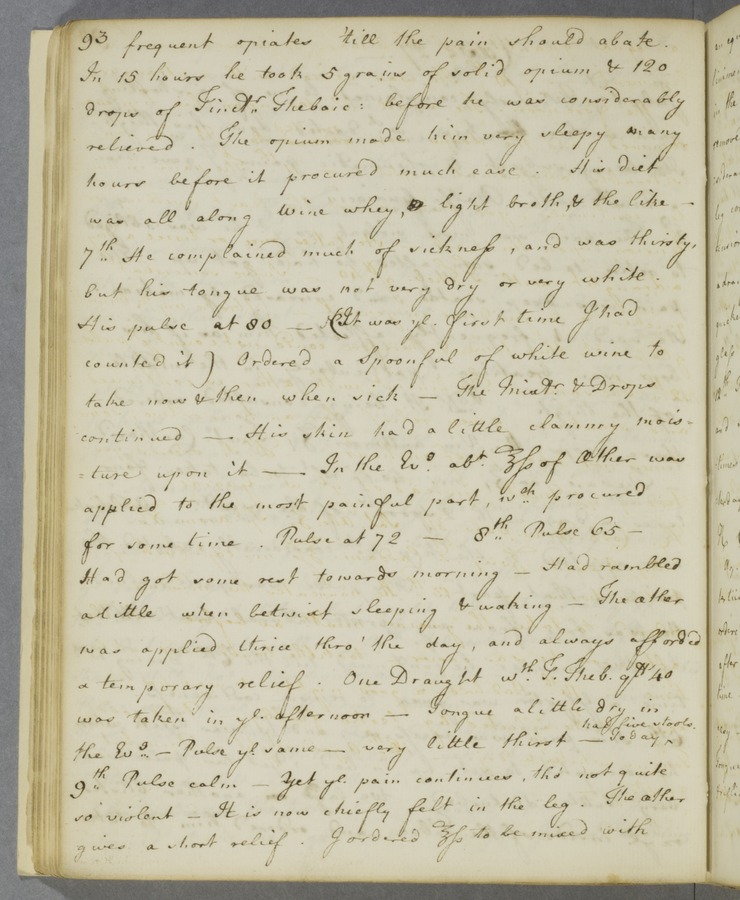 93 frequent opiates 'till the pain should abate.
In 15 hours he took 5 grains of solid opium & 120
drops of Tinctr. Thebaic: before he was considerably
relieved. The opium made him very sleepy many
hours before it procured much ease. His diet
was all along wine whey, light broth, & the like –
7th. He complained much of sickness, and was thirsty,
but his tongue was not very dry or very white.
His pulse at 80 — (It was ye. first time I had
counted it) Ordered a Spoonful of white wine to
take now & then when sick — The Mixtr. & Drops
continued — His skin had a little clammy mois-
=ture upon it — In the Evg. abt. ʒss of Æther was
applied to the most painful part, wch. procured
for some time. Pulse at 72 — 8th. Pulse 65 –
Had got some rest towards morning – Had rambled
a little when betwixt sleeping & waking – The æther
was applied thrice thro' the day, and always afforded
a temporary relief. One Draught wth. T. Theb. gtts 40
was taken in ye. afternoon — Tongue a little dry in
had five stools.
the Evg. – Pulse ye. same – very little thirst – To day ^
9th. Pulse calm – Yet ye. pain continues, tho' not quite
so violent – It is now chiefly felt in the leg. The æther
gives a short relief. I ordered ʒss to be mixed with